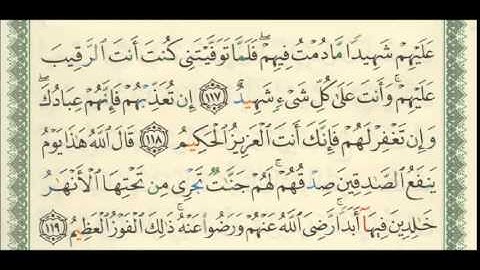 عَلَيْهِمْ شَهِيدًا مَّا دُمْتُ فِيهِمْ ۖ فَلَمَّا تَوَفَّيْتَنِي كُنتَ أَنتَ ٱلرَّقِيبَ
عَلَيْهِمْ ۚ وَأَنتَ عَلَىٰ كُلِّ شَىْءٍ شَهِيدٌ ١١٧ إِن تُعَذِّبْهُمْ فَإِنَّهُمْ عِبَادُكَ ۖ
وَإِن تَغْفِرْ لَهُمْ فَإِنَّكَ أَنتَ ٱلْعَزِيزُ ٱلْحَكِيمُ ١١٨ قَالَ ٱللَّهُ هَٰذَا يَوْمُ
يَنفَعُ ٱلصَّٰدِقِينَ صِدْقُهُمْ ۚ لَهُمْ جَنَّٰتٌ تَجْرِى مِن تَحْتِهَا ٱلْأَنْهَٰرُ
خَٰلِدِينَ فِيهَآ أَبَدًا ۚ رَّضِىَ ٱللَّهُ عَنْهُمْ وَرَضُوا۟ عَنْهُ ۚ ذَٰلِكَ ٱلْفَوْزُ ٱلْعَظِيمُ ١١٩